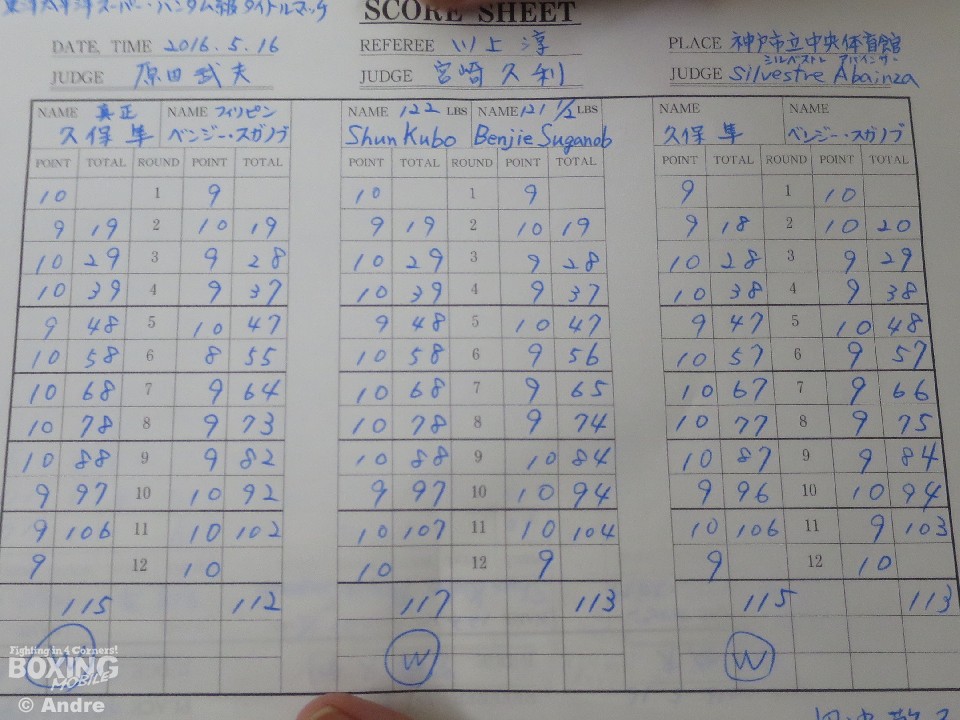 東洋太平洋スーパー・バンタム級タイトルマッチ
SCORE SHEET
DATE, TIME 2016.5.16 REFEREE 川上 淳 PLACE 神戸市立中央体育館
シルベストル アバインザー
JUDGE 原田武夫 JUDGE 宮崎久利 JUDGE Silvestre Abainza
NAME 真正 NAME フィリピン NAME 122 LBS NAME 121 1/2 LBS NAME NAME
久保 隼 ベンジー・スガノブ Shun Kubo Benjie Suganob 久保 隼 ベンジー・スガノブ
POINT TOTAL ROUND POINT TOTAL POINT TOTAL ROUND POINT TOTAL POINT TOTAL ROUND POINT TOTAL
10 1 9 10 1 9 9 1 10
9 19 2 10 19 9 19 2 10 19 9 18 2 10 20
10 29 3 9 28 10 29 3 9 28 10 28 3 9 29
10 39 4 9 37 10 39 4 9 37 10 38 4 9 38
9 48 5 10 47 9 48 5 10 47 9 47 5 10 48
10 58 6 8 55 10 58 6 9 56 10 57 6 9 57
10 68 7 9 64 10 68 7 9 65 10 67 7 9 66
10 78 8 9 73 10 78 8 9 74 10 77 8 9 75
10 88 9 9 82 10 88 9 10 84 10 87 9 9 84
9 97 10 10 92 9 97 10 10 94 9 96 10 10 94
9 106 11 10 102 10 107 11 10 104 10 106 11 9 103
9 12 10 10 12 9 9 12 10
115 112 117 113 115 113
W W W
Fighting in 4 Corners!
BOXING
MOBILE
© Andre